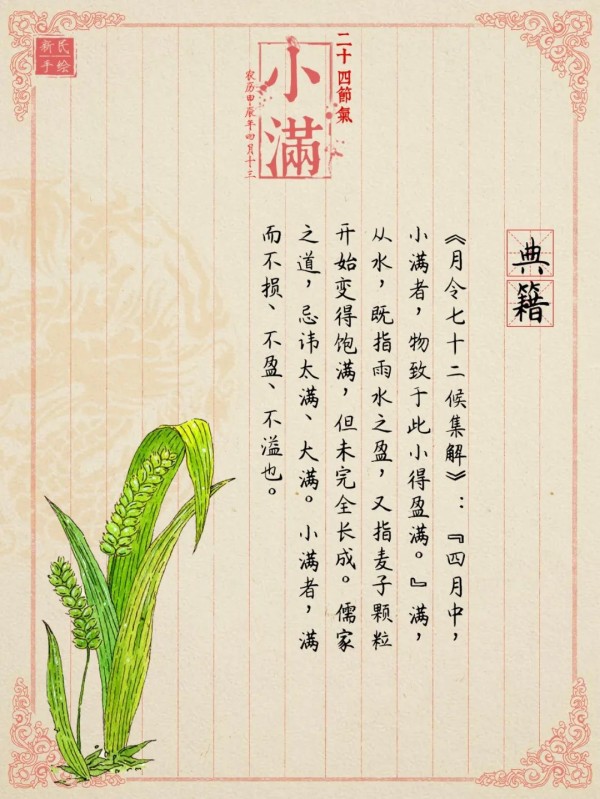 新氏
手绘
二十四節氣
小滿
农历甲辰年四月十三
典籍
《月令七十二候集解》：『四月中，
小满者，物致于此小得盈满。』满，
从水，既指雨水之盈，又指麦子颗粒
开始变得饱满，但未完全长成。儒家
之道，忌讳太满、大满。小满者，满
而不损、不盈、不溢也。